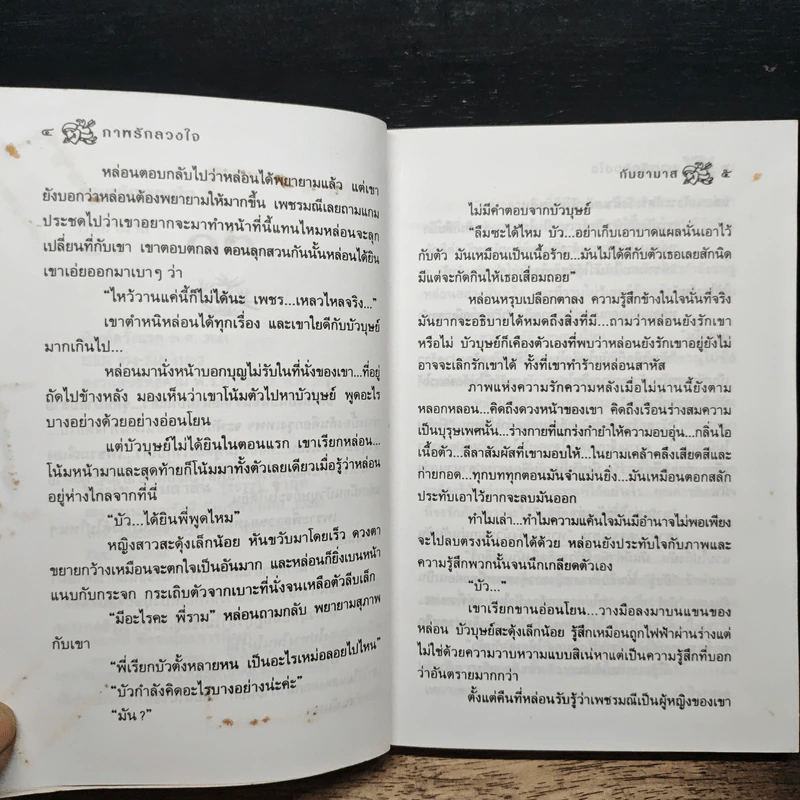 ๔ ภาพรักลวงใจ
หล่อนตอบกลับไปว่าหล่อนได้พยายามแล้ว แต่เขา
ยังบอกว่าหล่อนต้องพยายามให้มากขึ้น เพชรมณีเลยถามแกม
ประชดไปว่าเขาอยากจะมาทำหน้าที่นี้แทนไหมหล่อนจะลุก
เปลี่ยนที่กับเขา เขาตอบตกลง ตอนลุกสวนกันนั้นหล่อนได้ยิน
เขาเอ่ยออกมาเบาๆ ว่า
“ไหว้วานแค่นี้ก็ไม่ได้นะ เพชร...เหลวไหลจริง...”
เขาตำหนิหล่อนได้ทุกเรื่อง และเขาใยดีกับบัวบุษย์
มากเกินไป...
หล่อนมานั่งหน้าบอกบุญไม่รับในที่นั่งของเขา...ที่อยู่
ถัดไปข้างหลัง มองเห็นว่าเขาโน้มตัวไปหาบัวบุษย์ พูดอะไร
บางอย่างด้วยอย่างอ่อนโยน
แต่บัวบุษย์ไม่ได้ยินในตอนแรก เขาเรียกหล่อน...
โน้มหน้ามาและสุดท้ายก็โน้มมาทั้งตัวเลยเดียวเมื่อรู้ว่าหล่อน
อยู่ห่างไกลจากที่นี่
“บัว...ได้ยินพี่พูดไหม”
หญิงสาวสะดุ้งเล็กน้อย หันขวับมาโดยเร็ว ดวงตา
ขยายกว้างเหมือนจะตกใจเป็นอันมาก และหล่อนก็ยิ่งเบนหน้า
แนบกับกระจก กระเถิบตัวจากเบาะที่นั่งจนเหลือตัวลีบเล็ก
“มีอะไรคะ พี่ราม” หล่อนถามกลับ พยายามสุภาพ
กับเขา
“พี่เรียกบัวตั้งหลายหน เป็นอะไรเหม่อลอยไปไหน”
“บัวกำลังคิดอะไรบางอย่างน่ะค่ะ”
“มัน ?”
กันยามาส ๕
ไม่มีคำตอบจากบัวบุษย์
“ลืมซะได้ไหม บัว...อย่าเก็บเอาบาดแผลนั่นเอาไว้
กับตัว มันเหมือนเป็นเนื้อร้าย...มันไม่ได้ดีกับตัวเธอเลยสักนิด
มีแต่จะกัดกินให้เธอเสื่อมถอย”
หล่อนหรุบเปลือกตาลง ความรู้สึกข้างในใจนั่นที่จริง
มันยากจะอธิบายได้หมดถึงสิ่งที่มี...ถามว่าหล่อนยังรักเขา
หรือไม่ บัวบุษย์ก็เคืองตัวเองที่พบว่าหล่อนยังรักเขาอยู่ยังไม่
อาจจะเลิกรักเขาได้ ทั้งที่เขาทำร้ายหล่อนสาหัส
ภาพแห่งความรักความหลังเมื่อไม่นานนี้ยังตาม
หลอกหลอน...คิดถึงดวงหน้าของเขา คิดถึงเรือนร่างสมความ
เป็นบุรุษเพศนั้น...ร่างกายที่แกร่งกำยำให้ความอบอุ่น...กลิ่นไอ
เนื้อตัว...ลีลาสัมผัสที่เขามอบให้...ในยามเคล้าคลึงเสียดสีและ
ก่ายกอด...ทุกบททุกตอนมันจำแม่นยิ่ง...มันเหมือนตอกสลัก
ประทับเอาไว้ยากจะลบมันออก
ทำไมเล่า...ทำไมความแค้นใจมันมีอำนาจไม่พอเพียง
จะไปลบตรงนั้นออกได้ด้วย หล่อนยังประทับใจกับภาพและ
ความรู้สึกพวกนั้นจนนึกเกลียดตัวเอง
“บัว...”
เขาเรียกขานอ่อนโยน...วางมือลงมาบนแขนของ
หล่อน บัวบุษย์สะดุ้งเล็กน้อย รู้สึกเหมือนถูกไฟฟ้าผ่านร่างแต่
ไม่ใช่ด้วยความวาบหวามแบบสิเน่หาแต่เป็นความรู้สึกที่บอก
ว่าอันตรายมากกว่า
ตั้งแต่คืนที่หล่อนรับรู้ว่าเพชรมณีเป็นผู้หญิงของเขา